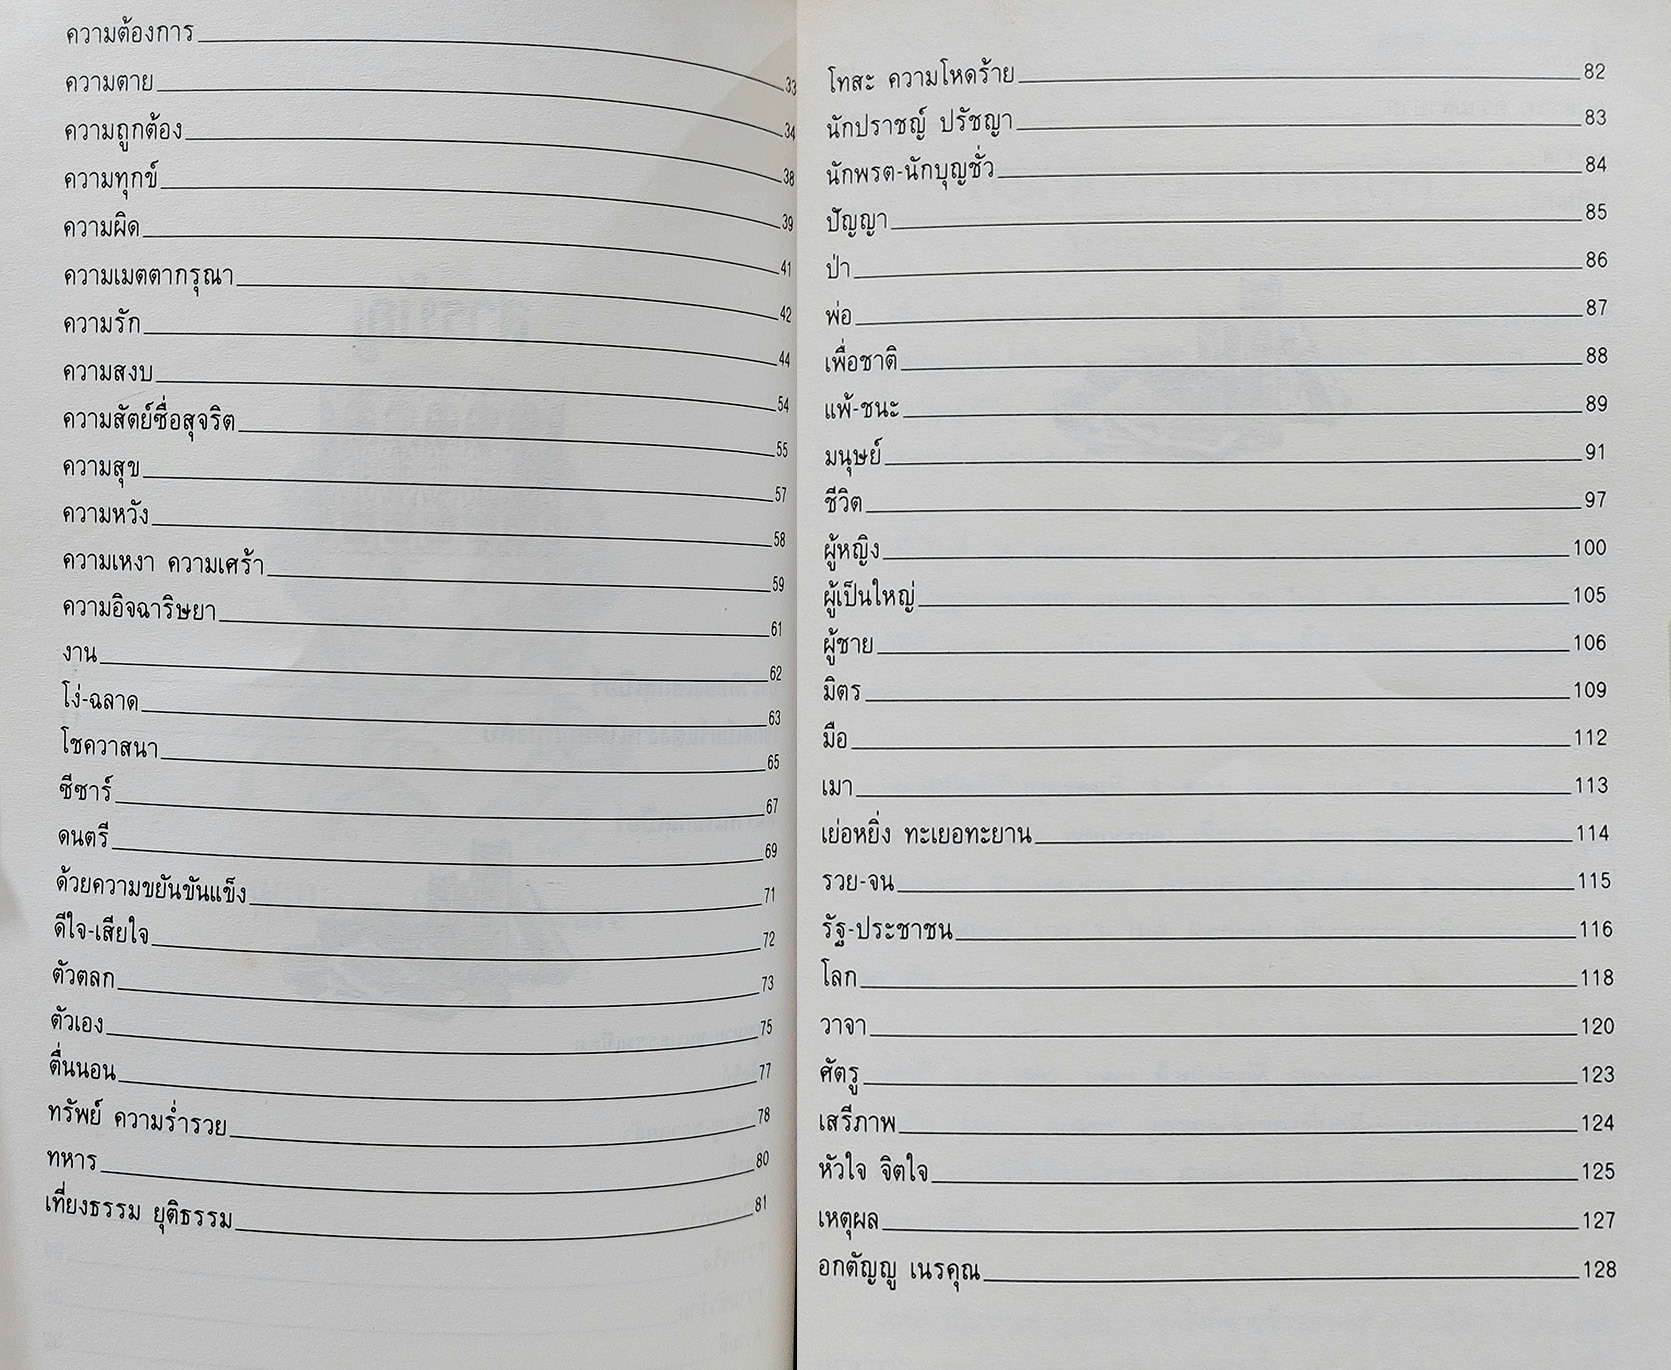 ความต้องการ 33
ความตาย 34
ความถูกต้อง 38
ความทุกข์ 39
ความผิด 41
ความเมตตากรุณา 42
ความรัก 44
ความสงบ 54
ความสัตย์ซื่อสุจริต 55
ความสุข 57
ความหวัง 58
ความเหงา ความเศร้า 59
ความอิจฉาริษยา 61
งาน 62
โง่-ฉลาด 63
โชควาสนา 65
ซีซาร์ 67
ดนตรี 69
ด้วยความขยันขันแข็ง 71
ดีใจ-เสียใจ 72
ตัวตลก 73
ตัวเอง 75
ตื่นนอน 77
ทรัพย์ ความร่ำรวย 78
ทหาร 80
เที่ยงธรรม ยุติธรรม 81
โทสะ ความโหดร้าย 82
นักปราชญ์ ปรัชญา 83
นักพรต-นักบุญชั่ว 84
ปัญญา 85
ป่า 86
พ่อ 87
เพื่อชาติ 88
แพ้-ชนะ 89
มนุษย์ 91
ชีวิต 97
ผู้หญิง 100
ผู้เป็นใหญ่ 105
ผู้ชาย 106
มิตร 109
มือ 112
เมา 113
เย่อหยิ่ง ทะเยอทะยาน 114
รวย-จน 115
รัฐ-ประชาชน 116
โลก 118
วาจา 120
ศัตรู 123
เสรีภาพ 124
หัวใจ จิตใจ 125
เหตุผล 127
อกตัญญู เนรคุณ 128